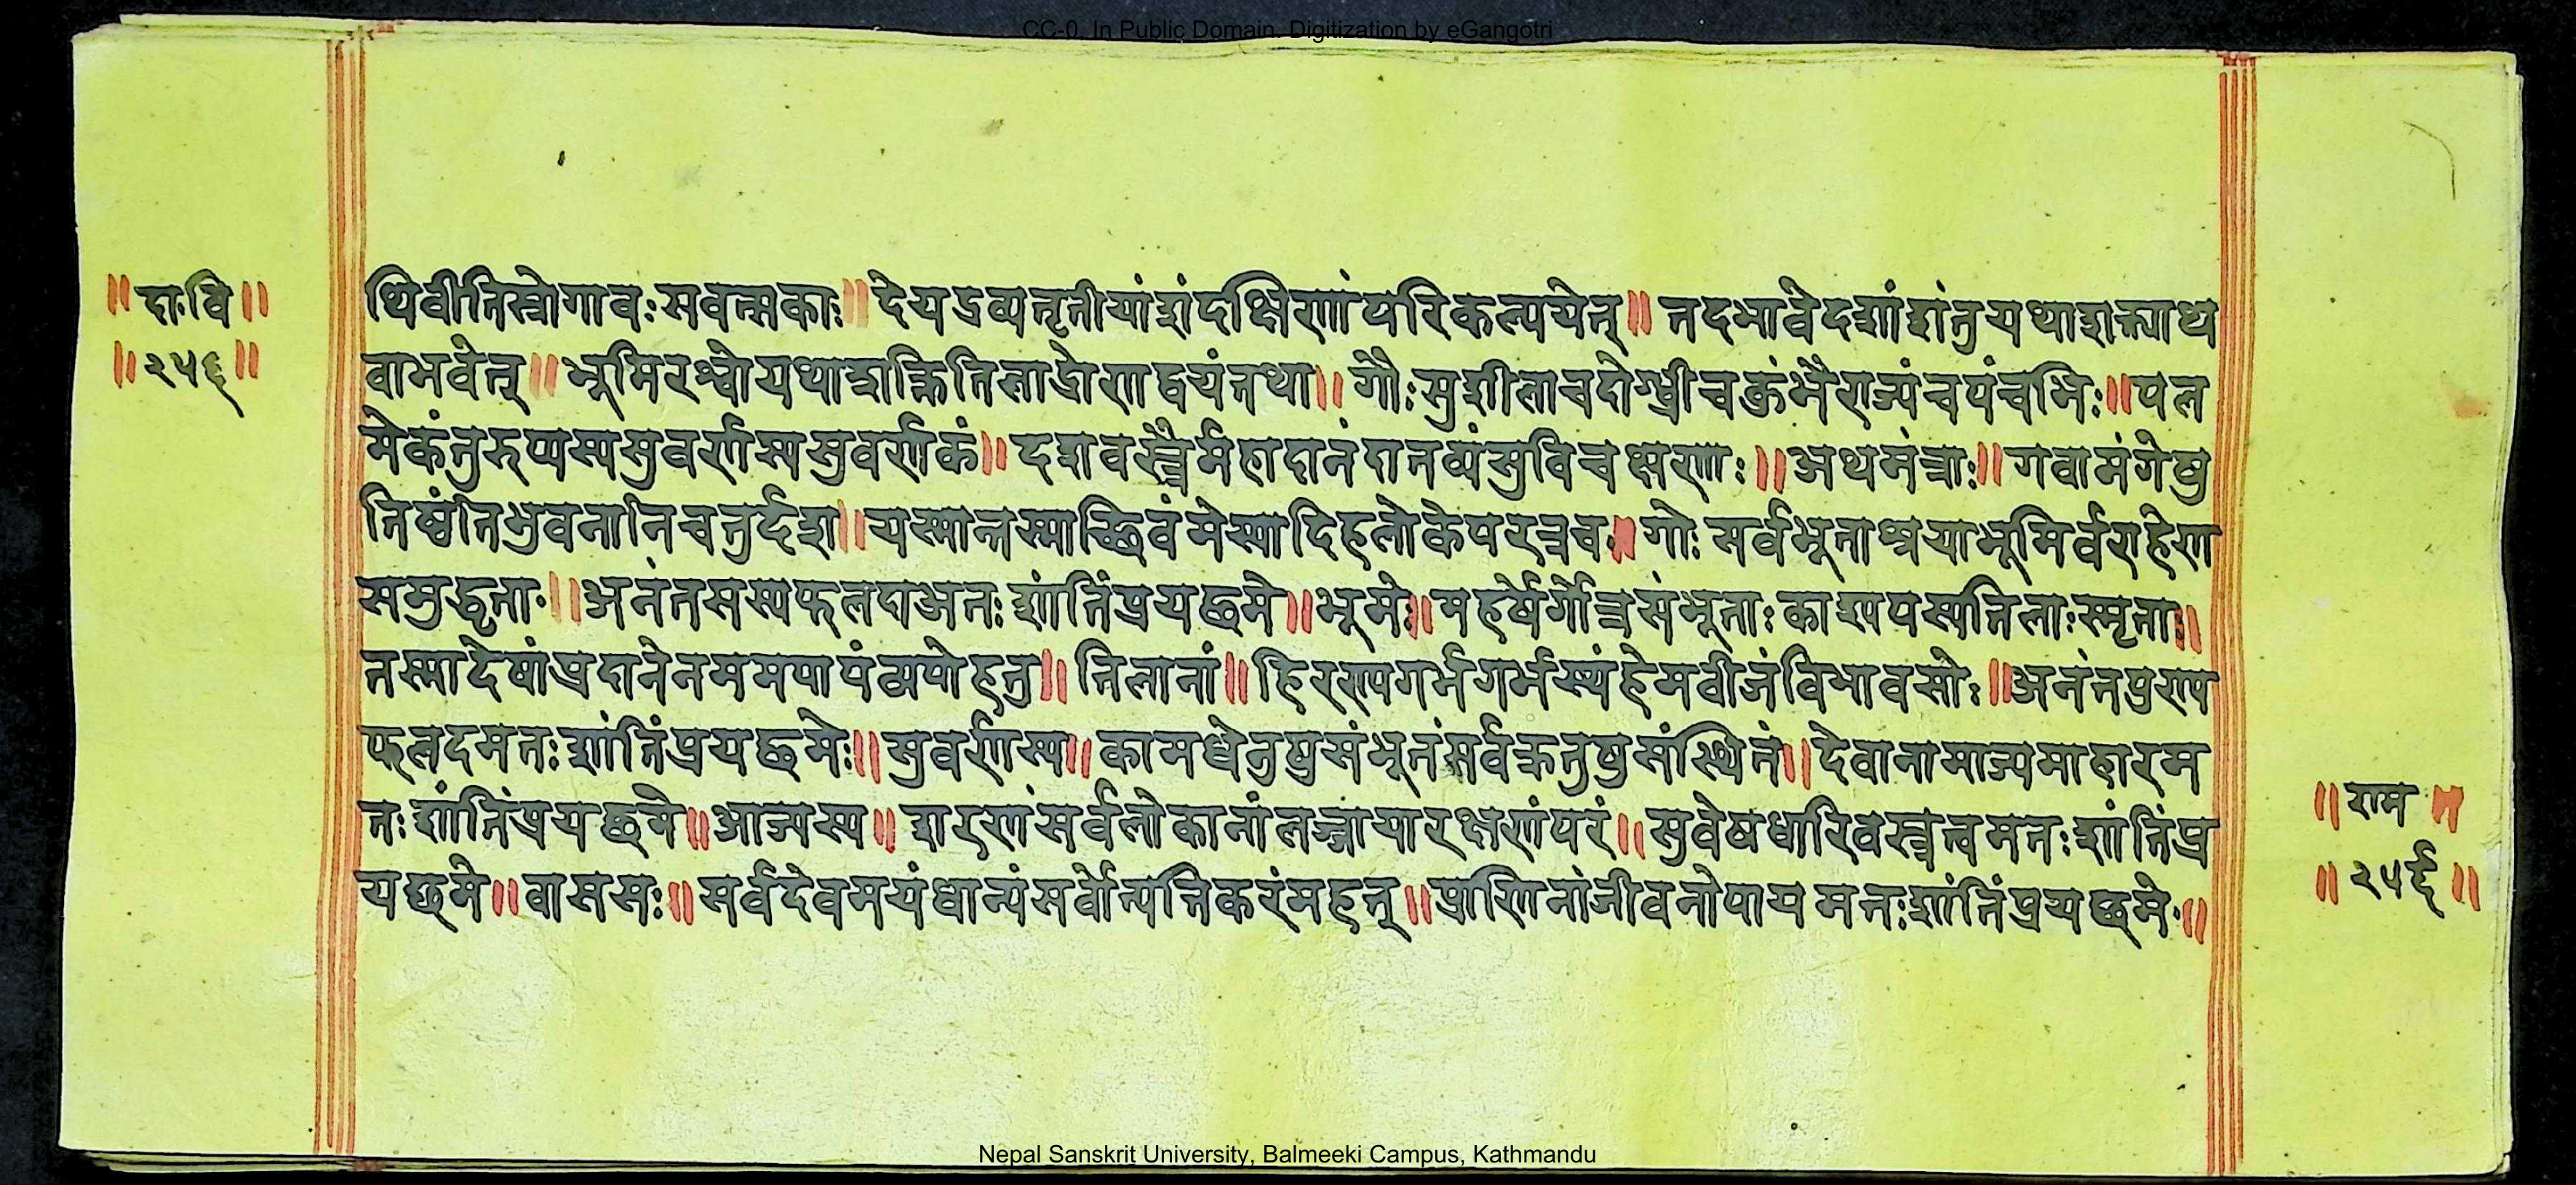 CC-0. In Public Domain. Digitization by eGangotri
॥दा॰वि॥
॥२५६॥
थिवीतिस्रोगावःसवत्सकाः॥देयद्रव्यतृतीयांशंदक्षिणांपरिकल्पयेत्॥तदभावेदशांशंतुयथाशक्त्याथ
वाभवेत्॥भूमिरश्वोयथाशक्तितिलाद्रोणद्वयंतथा॥गौःसुशीलाचदोग्ध्रीचकुंभैराज्यंचपंचभिः॥पल
मेकंतुरुप्यस्यसुवर्णस्यसुवर्णकं॥दशवस्त्रैर्महादानंदातव्यंसुविचक्षणाः॥अथमंत्राः॥गवामंगेषु
तिष्ठंतिभुवनानिचतुर्दश॥यस्मात्तस्माच्छिवंमेस्यादिहलोकेपरत्रच॥गोः सर्वभूताश्रयाभूमिर्वराहेण
समुद्धृता॰॥अनंतसस्यफलदाअतःशांतिंप्रयछमे॥भूमेः॥महर्षेर्गोत्रसंभूताःकाश्यपस्यतिलाःस्मृताः॥
तस्मादेषांप्रदानेनममपापंव्यपोहतु॥तिलानां॥हिरण्यगर्भगर्भस्यंहेमवीजंविभावसोः॥अनंतपुण्य
फलदमतःशांतिंप्रयछमेः॥सुवर्णस्य॥कामधेनुषुसंभूतंसर्वक्रतुषुसंस्थितं॥देवानामाज्यमाहारम
तःशांतिंप्रयछमे॥आज्यस्य॥शरणंसर्वलोकानांलज्जायारक्षणंपरं॥सुवेषधारिवस्त्रत्वमतःशांतिंप्र
यछमे॥वाससः॥सर्वदेवमयंधान्यंसर्वोत्पत्तिकरंमहत्॥प्राणिनांजीवनोपायमतःशांतिंप्रयछमे॰॥
॥राम॥
॥२५६॥
Nepal Sanskrit University, Balmeeki Campus, Kathmandu